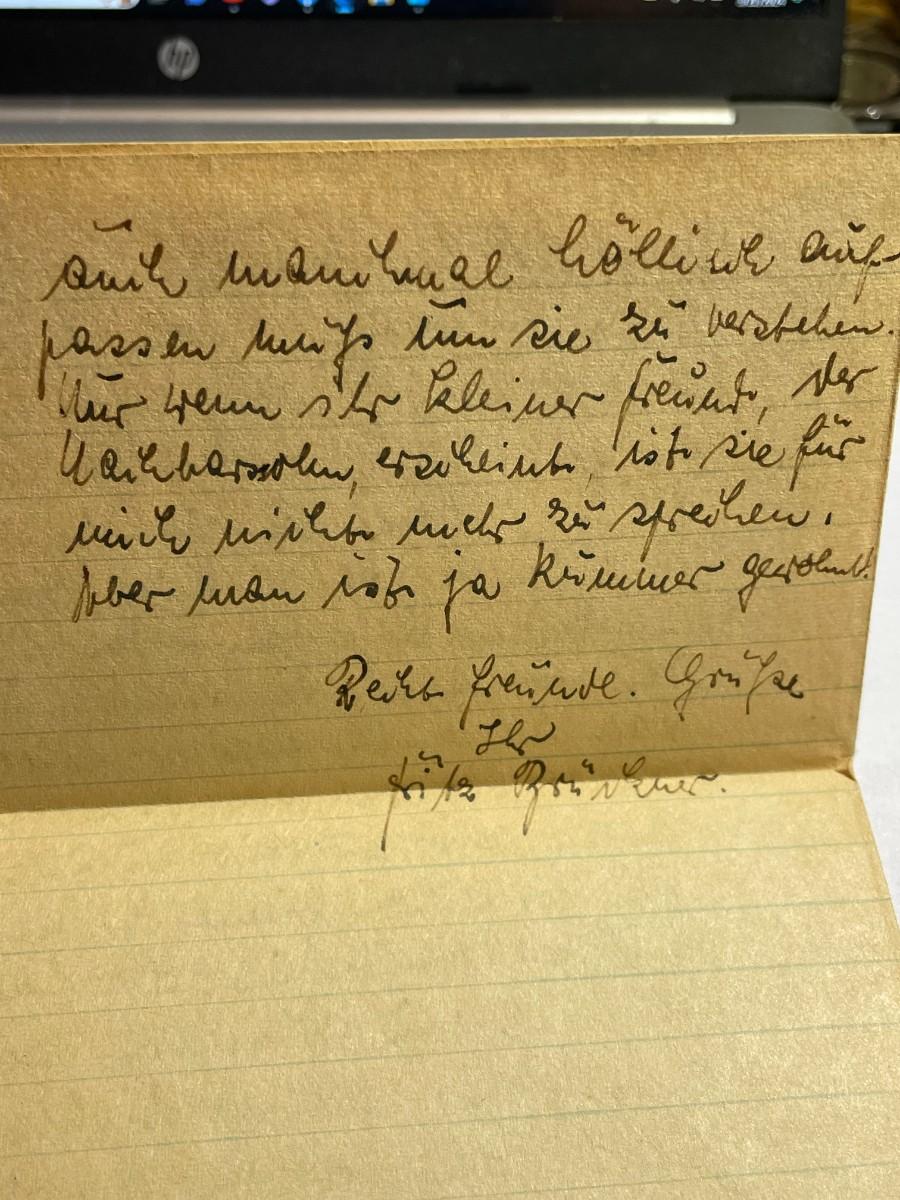 hp
auch manchmal höllisch auf-
passen muß um sie zu verstehen.
Nur wenn ihr kleiner Freund, der
Nachbarssohn, erscheint, ist sie für
mich nicht mehr zu sprechen.
Aber man ist ja Kummer gewohnt!
Recht freundl. Grüße
Ihr
Fritz Brückner.